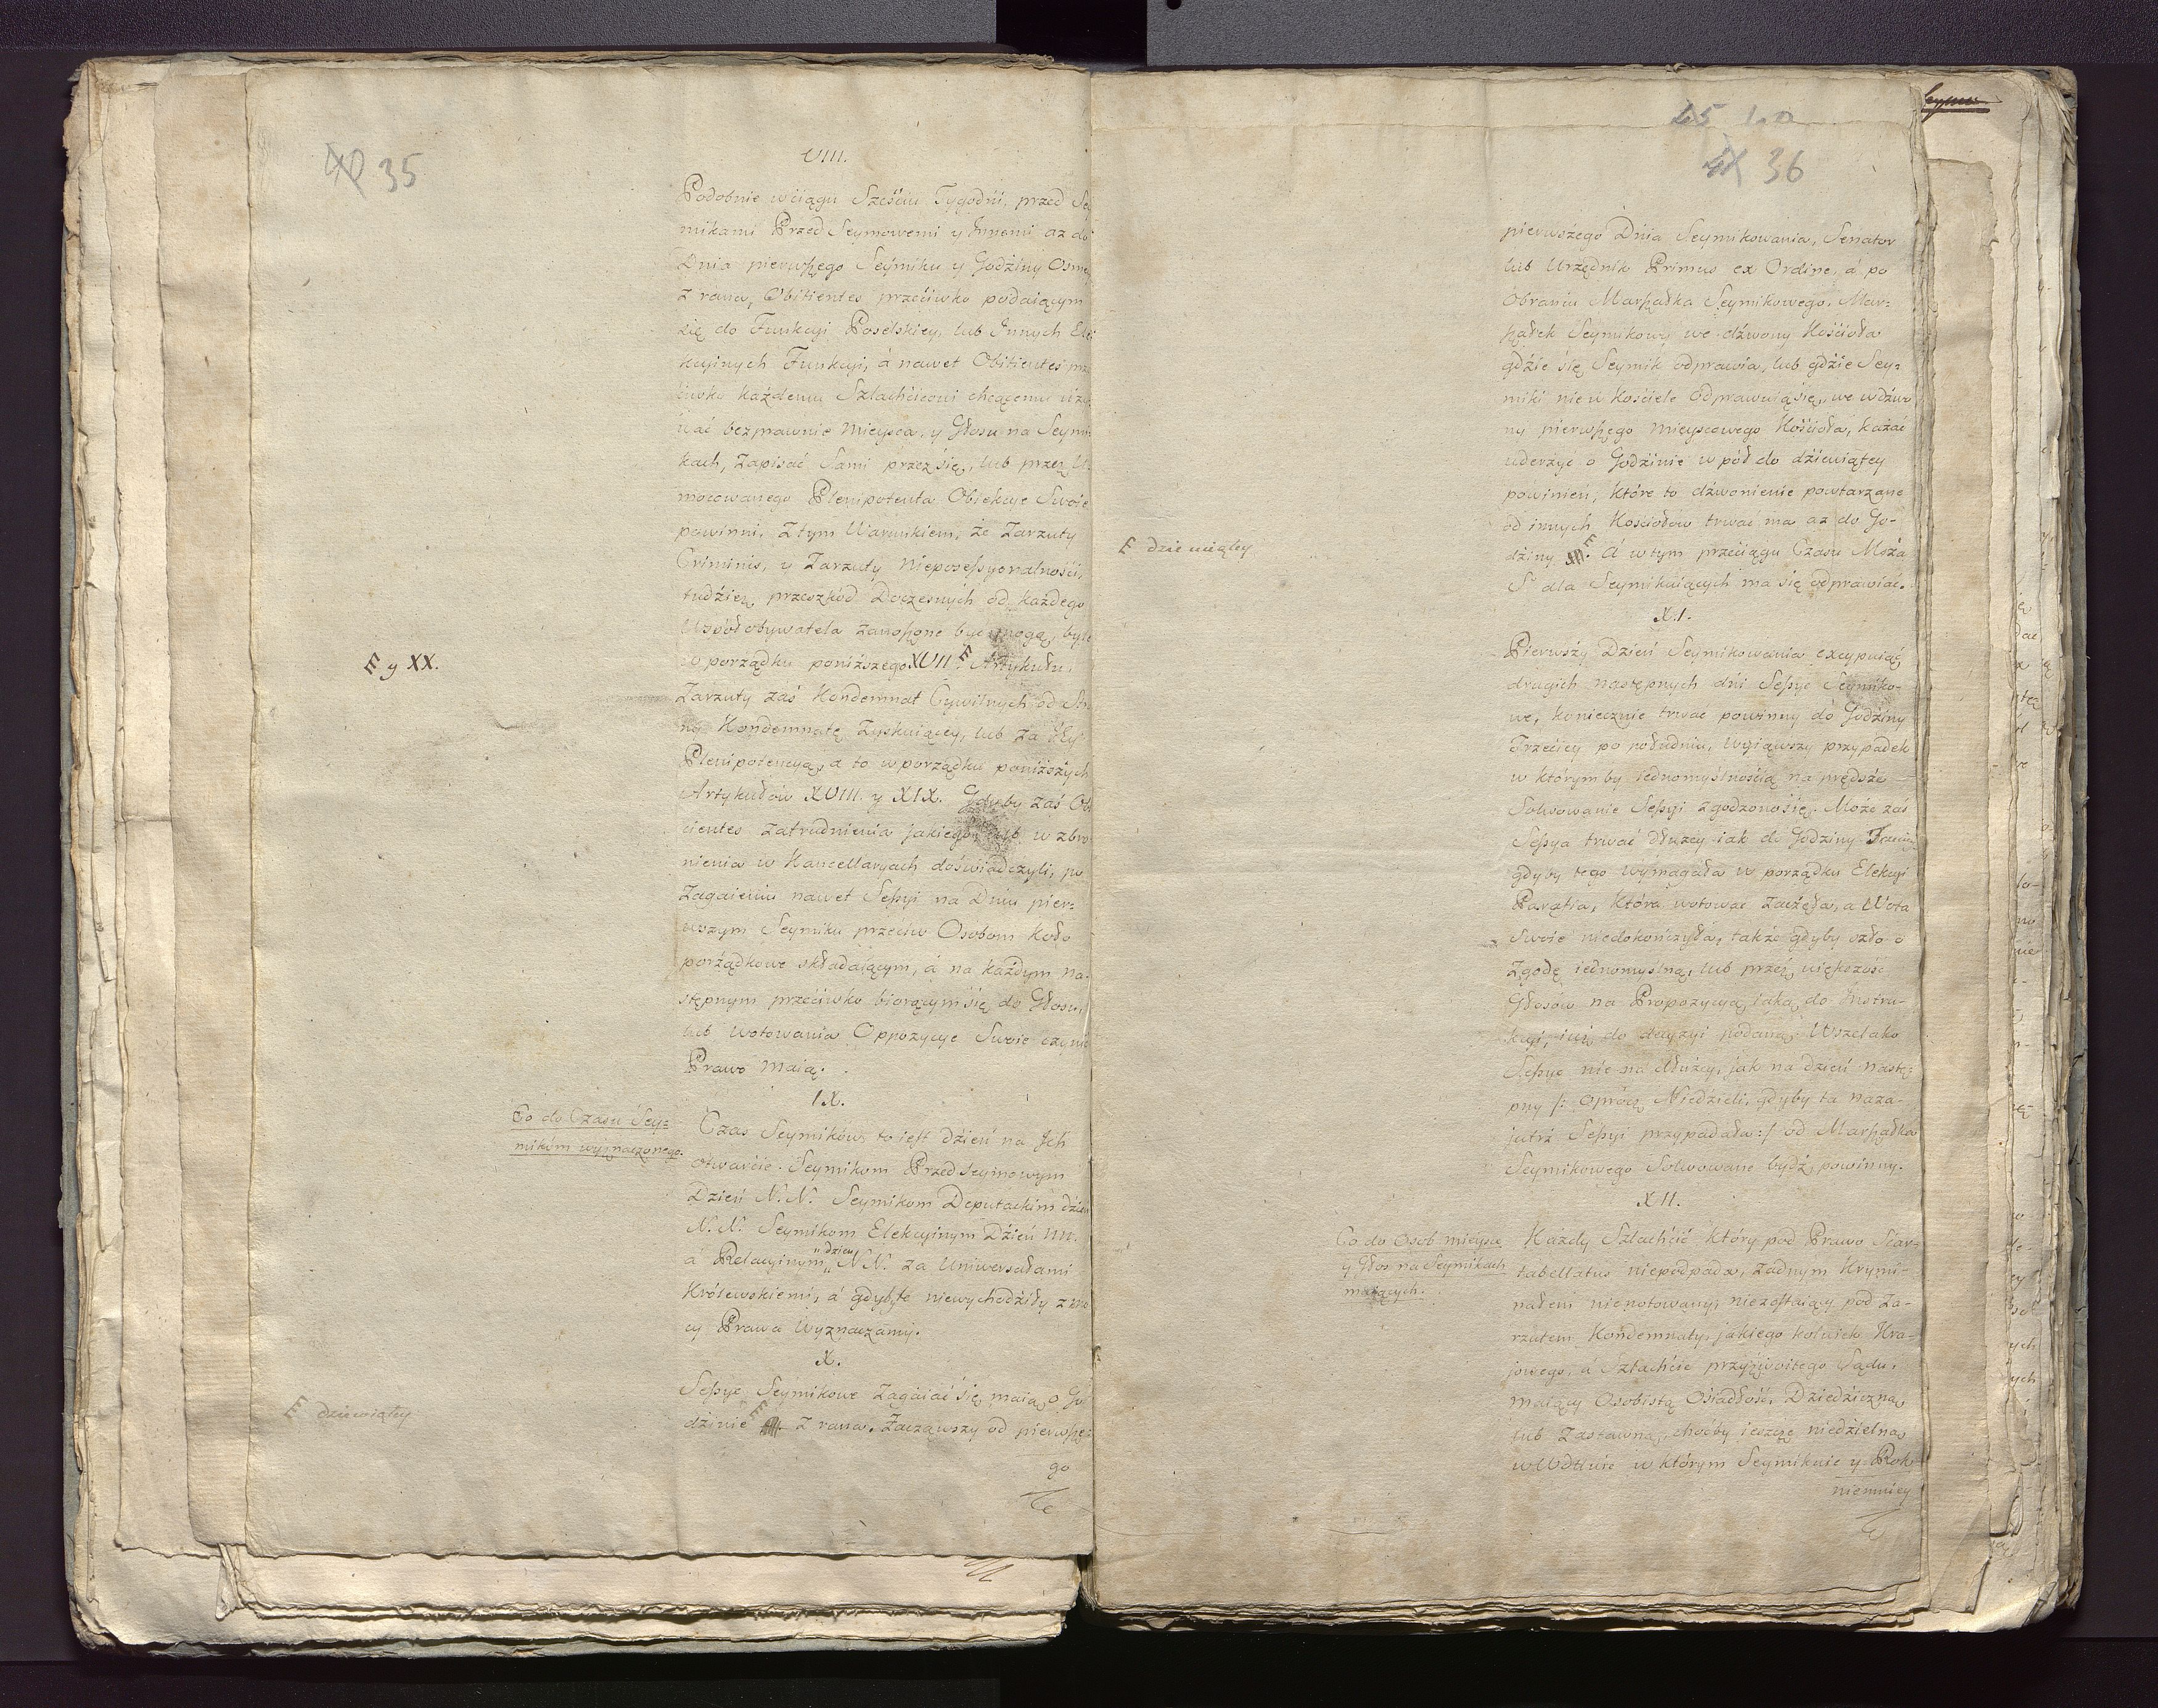 35
VIII.
Podobnie wciągu Sześciu Tygodni, przed Sey
mikami Przed Seymowemi y Innemi az do
Dnia pierwszego Seymiku y Godziny Osmey
z rana, Obiitientes przeciwko podaiącym
się do Funkcyi Poselskiey, lub Innych Ele
kcyinych Funkcyi, á nawet Obiitientes prze
ciwko każdemu Szlachcicowi chcącemu uży
wać bezprawnie Mieysca, y Głosu na Seymi
kach, zapisać Sami przez się, lub przez U
mocowanego Plenipotenta Obiekcye Swoie
powinni, z tym Warunkiem, że Zarzuty
Criminis, y Zarzuty Nieposessyonalności,
tudzież przeszkód Doczesnych od każdego
Współobywatela zanoszone być mogą, byle
porządku poniższego XVII E Artykułu.
E y XX.
Zarzuty zaś Kondemnat Cywilnych od Stro
ny Kondemnatę Zyskuiącey, lub za Jey
Plenipotencyą, a to w porządku poniższych
Artykułów XVIII. y XIX. Gdyby zaś Obi
cientes zatrudnienia jakiego lub wzbro
nienia w Kancellaryach doświadczyli, po
Zagaieniu nawet Sessyi na Dniu pier=
wszym Seymiku przeciw Osobom koło
porządkowe składaiącym, á na każdym na=
stępnym przeciwko biorącym się do Głosu,
lub wotowania Oppozycye Swoie czynić
Prawo maią.
IX.
Co do Czasu Sey=
mikóm wyznaczonego.
Czas Seymików, to iest dzień na Ich
otwarcie. Seymikom Przedseymowym
Dzień N. N. Seymikom Deputackim dzień
N. N. Seymikom Elekcyinym Dzień NN.
á Relacyinym „dzień„ NN. za Uniwersałami
Królewskiemi, á gdyby te niewychodziły z mo
cy Prawa Wyznaczamy.
X.
Sessye Seymikowe Zagaiać się maią o Go
dzinie E z rana. Zacząwszy od pierwsze=
E dziewiątey
go
36
pierwszego Dnia Seymikowania, Senator
lub Urzędnik Primus ex Ordine, á po
Obraniu Marszałka Seymikowego, Mar=
szałek Seymikowy we dzwony Kościoła
gdzie się Seymik odprawia, lub gdzie Sey=
miki nie w Kościele odprawuią się, we wdzwo
ny pierwszego mieyscowego Kościoła, kazać
uderzyć o Godzinie wpół do dziewiątey
powinien, które to dzwonienie powtarzane
od innych Kościołów trwać ma aż do Go-
dziny E. A w tym przeciągu Czasu Msza
E dziewiątey
S dla Seymikuiących ma się odprawiać.
XI.
Pierwszy Dzień Seymikowania excypuiąc,
drugich następnych dni Sessye Seymiko-
we, koniecznie trwać powinny do Godziny
Trzeciey po południu, wyiąwszy przypadek
w którym by iednomyślnością na prędsze
Solwowanie Sessyi zgodzono się. Może zaś
Sessya trwać dłużey iak do Godziny Trzeciey
gdyby tego wymagała w porządku Elekcyi
Parafia, która wotować zaczęła, a Wota
Swoie niedokończyła, także gdyby szło o
zgodę iednomyślną, lub przez większość
Głosów na Propozycyą iaką, do Instru-
kcyi, iuż do decyzyi podaną. Wszelako
Sessye nie na dłużey, jak na dzień nastę=
pny /: oprócz Niedzieli, gdyby ta naza-
jutrz Sessyi przypadała :/ od Marszałka
Seymikowego Solwowane bydź powinny.
XII.
Co do Osob mieysce
y Głos na Seymikach
maiących.
Każdy Szlachcic który pod Prawo Scar-
tabellatus niepodpada, żadnym krymi-
nałem nienotowany, niezostaiący pod Za-
rzutem Kondemnaty, jakiego kolwiek Kra-
jowego, á Szlachcie przyzwoitego Sądu,
maiący Osobistą Osiadłość, Dziedziczną
lub Zastawną, choćby ieszcze niedzielną
w Wdztwie w którym Seymikuie y Rok
niemniey